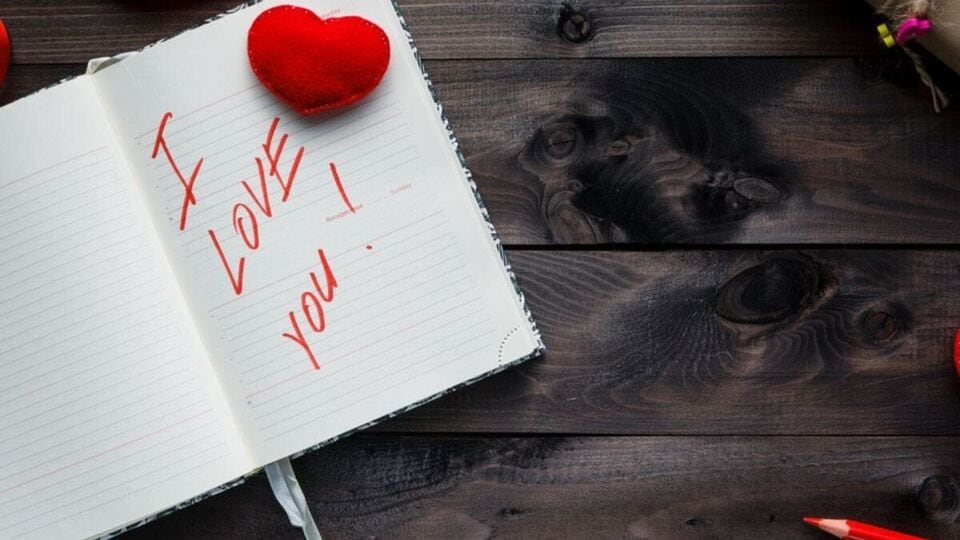 Saturday
I
LOVE
YOU!
Воскресенье Sunday